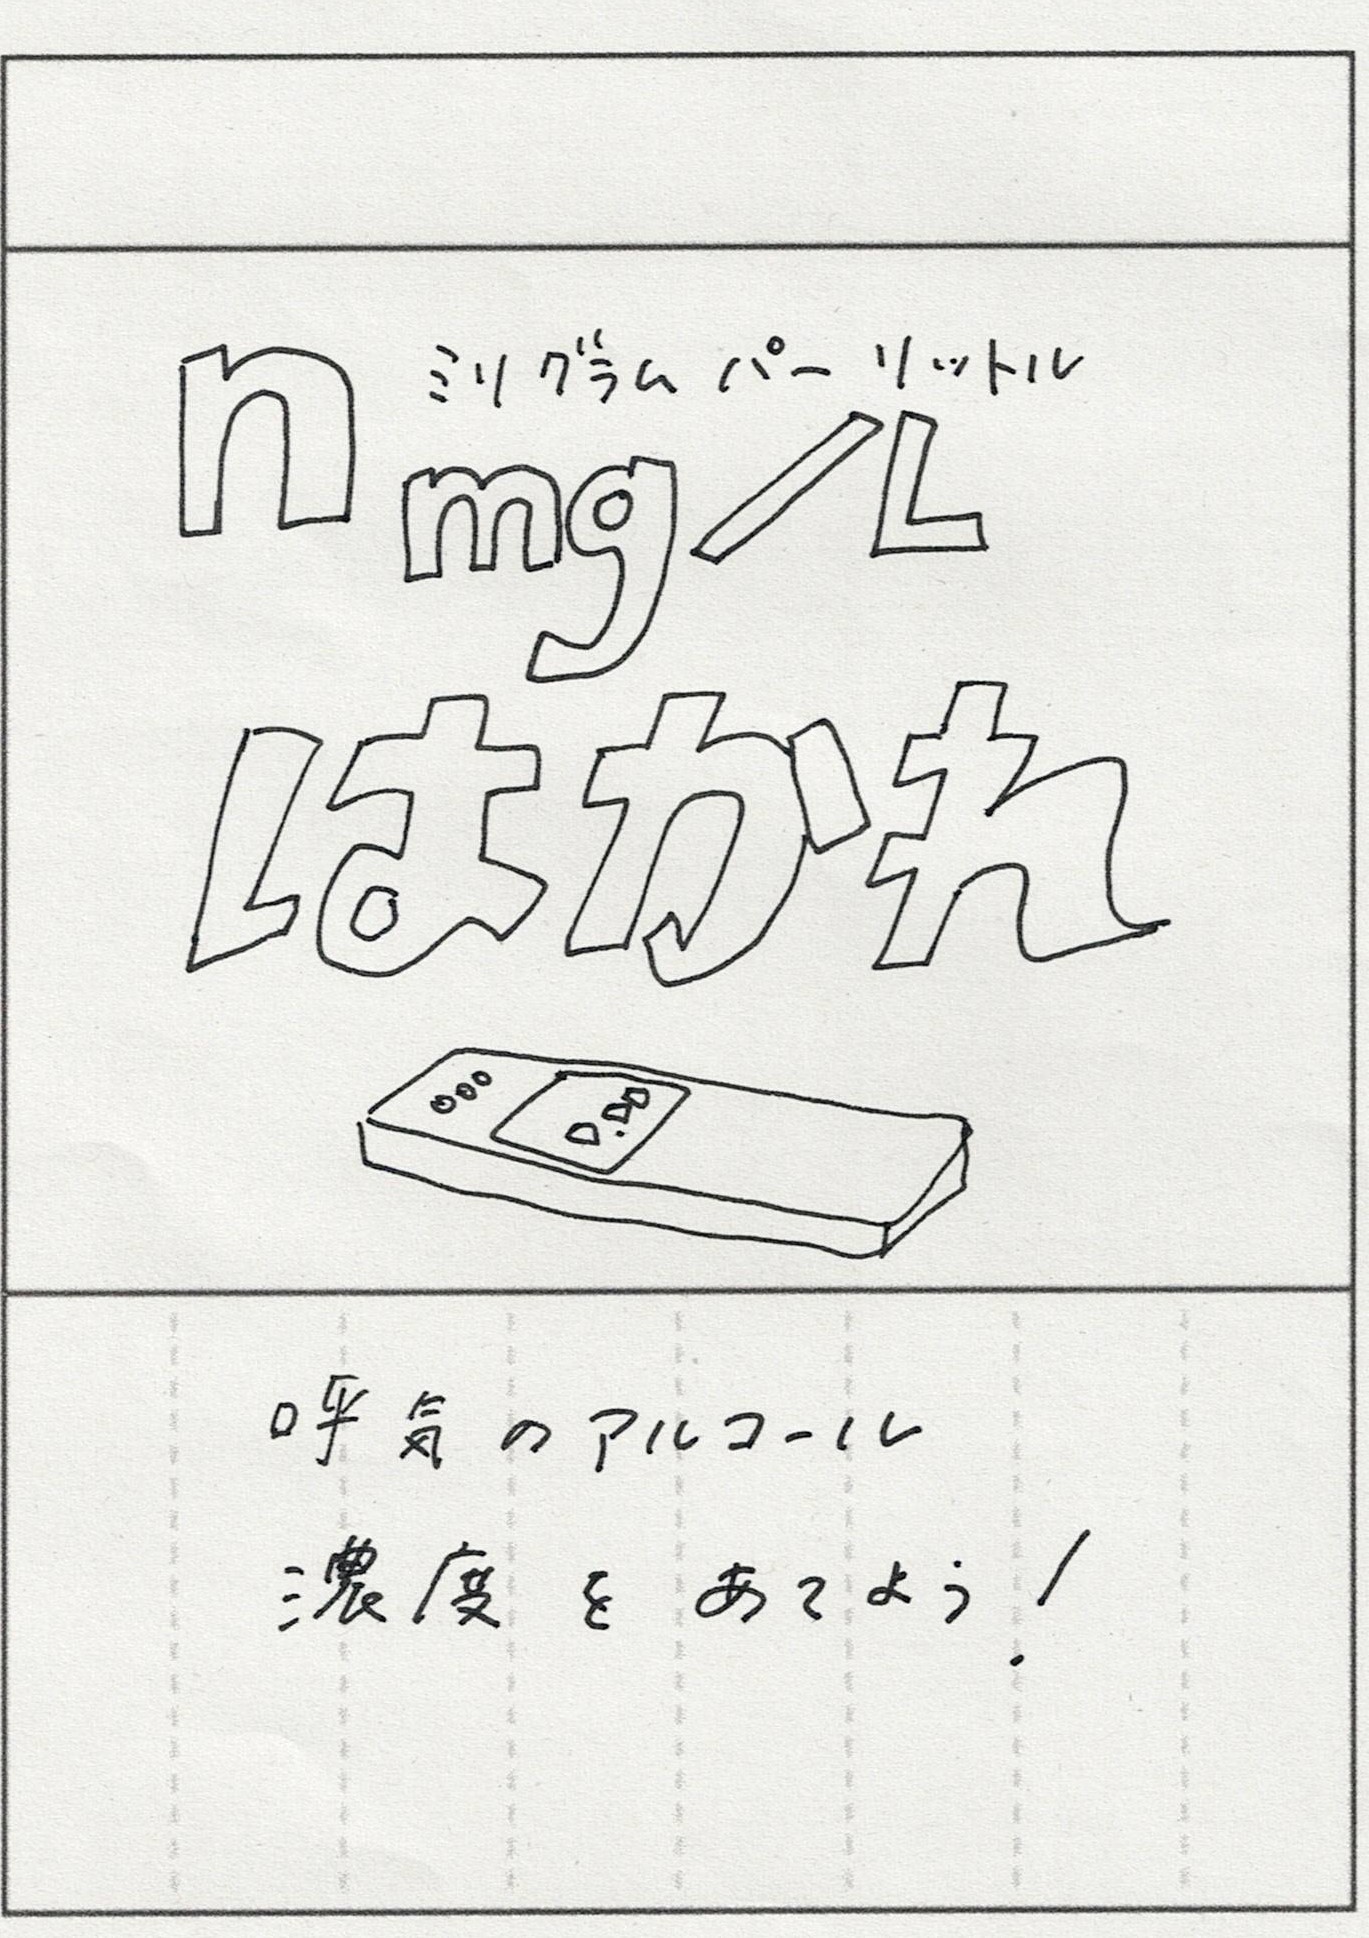 n
ミリグラムパーリットル
mg/L
はかれ
0.00
呼気のアルコール
濃度をあてよう!